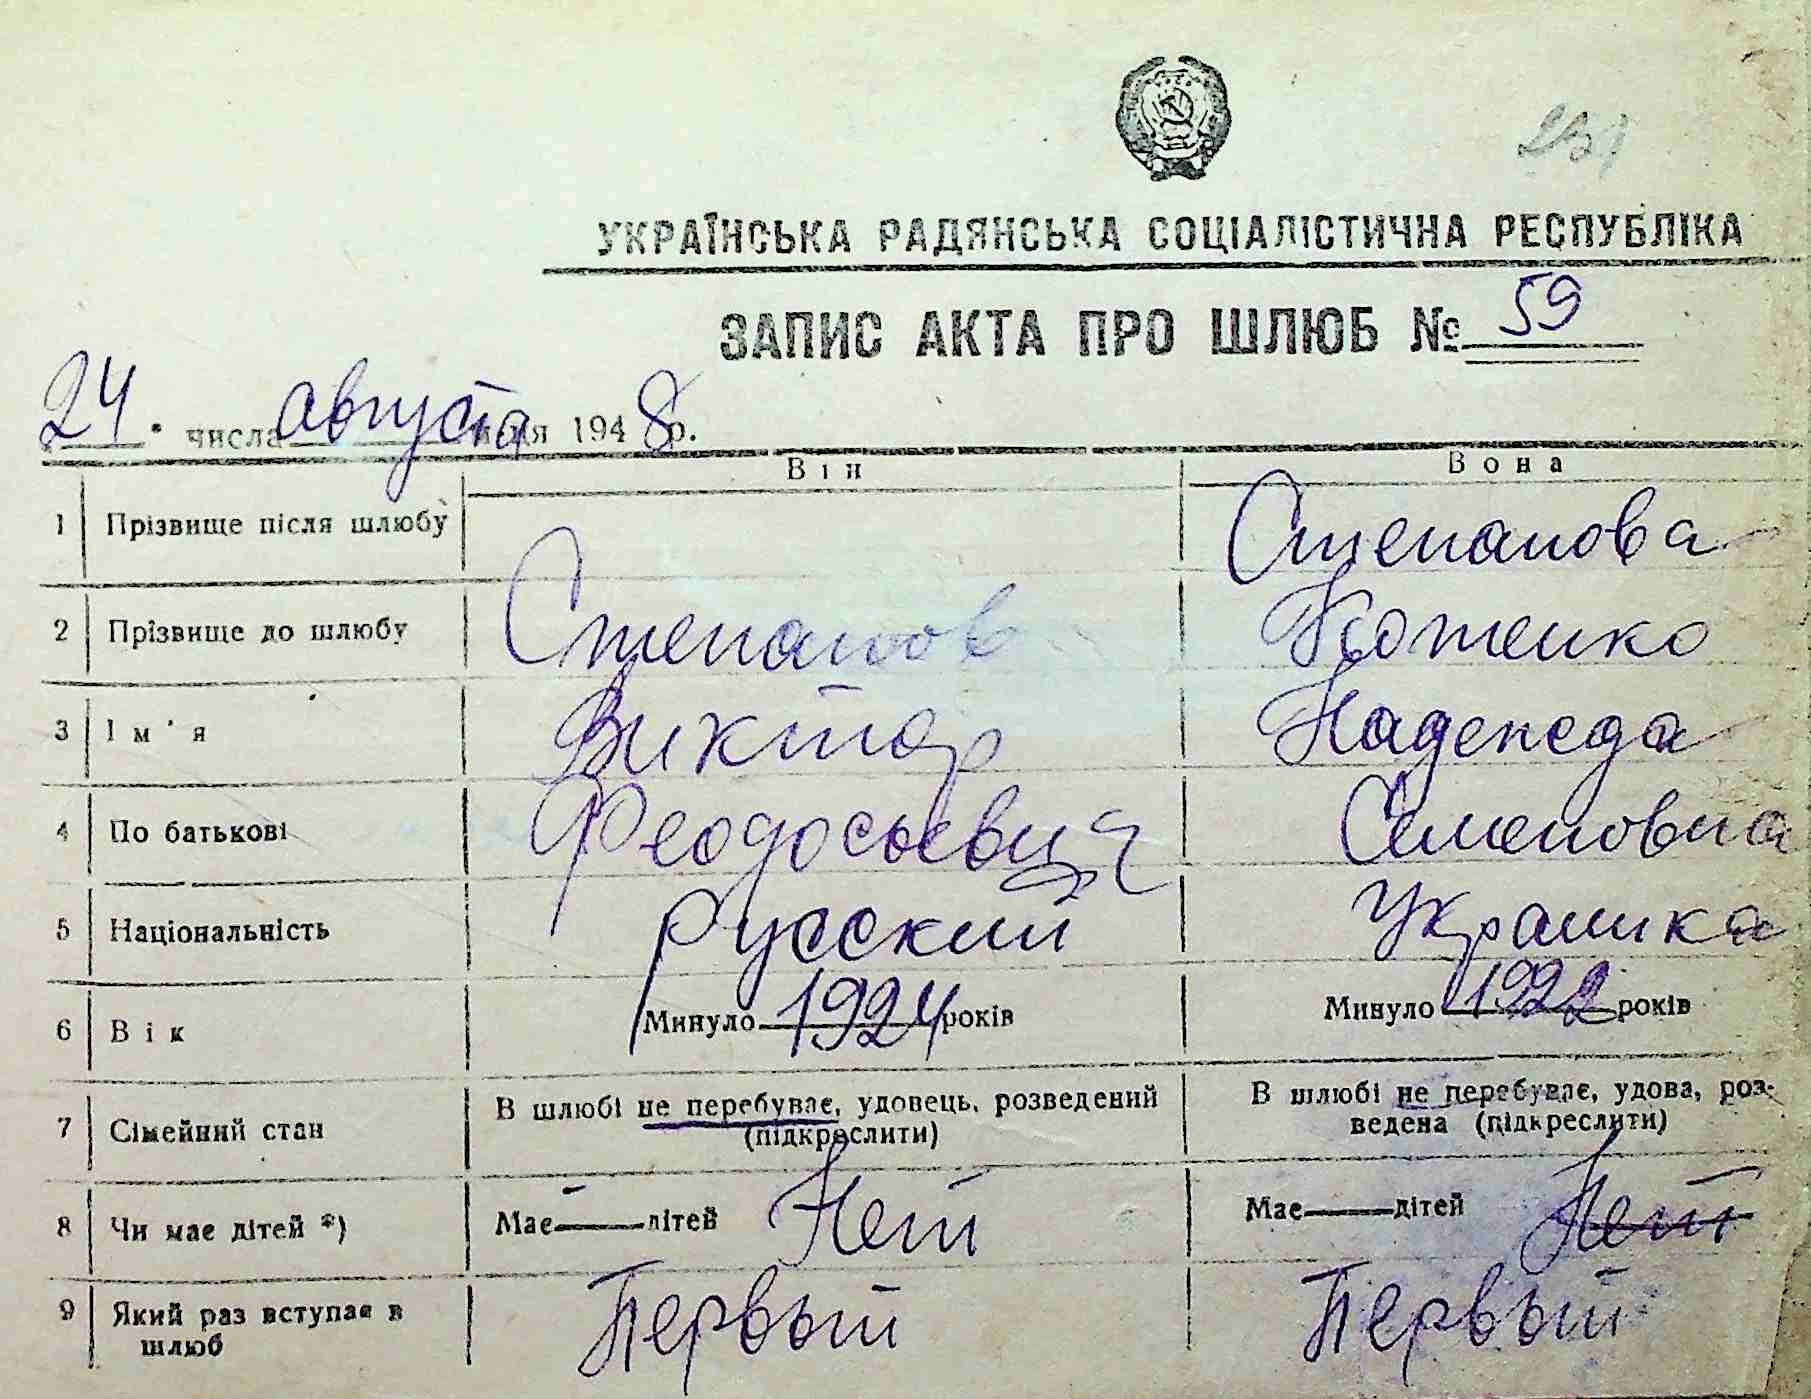 УКРАЇНСЬКА РАДЯНСЬКА СОЦІАЛІСТИЧНА РЕСПУБЛІКА
ЗАПИС АКТА ПРО ШЛЮБ № 59
24 числа августа місяця 1948 р.
Він Вона
1 Прізвище після шлюбу Степанова
2 Прізвище до шлюбу Степанов Котенко
3 Ім'я Виктор Надежда
4 По батькові Феодосьевич Семеновна
5 Національність Русский Украинка
6 Вік Минуло 1924 років Минуло 1922 років
7 Сімейний стан В шлюбі не перебуває, удовець, розведений (підкреслити) В шлюбі не перебуває, удова, роз-
ведена (підкреслити)
8 Чи має дітей *) Має дітей Нет Має дітей Нет
9 Який раз вступає в Первый Первый
шлюб